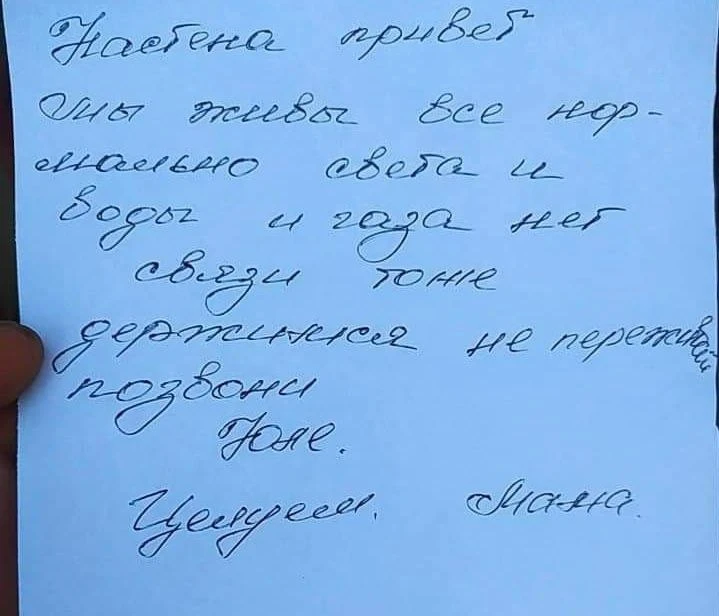 Настена привет
мы живы все нор-
мально света и
воды и газа нет
связи тоже
держимся не переживай
позвони
Юле.
Целуем. Мама.